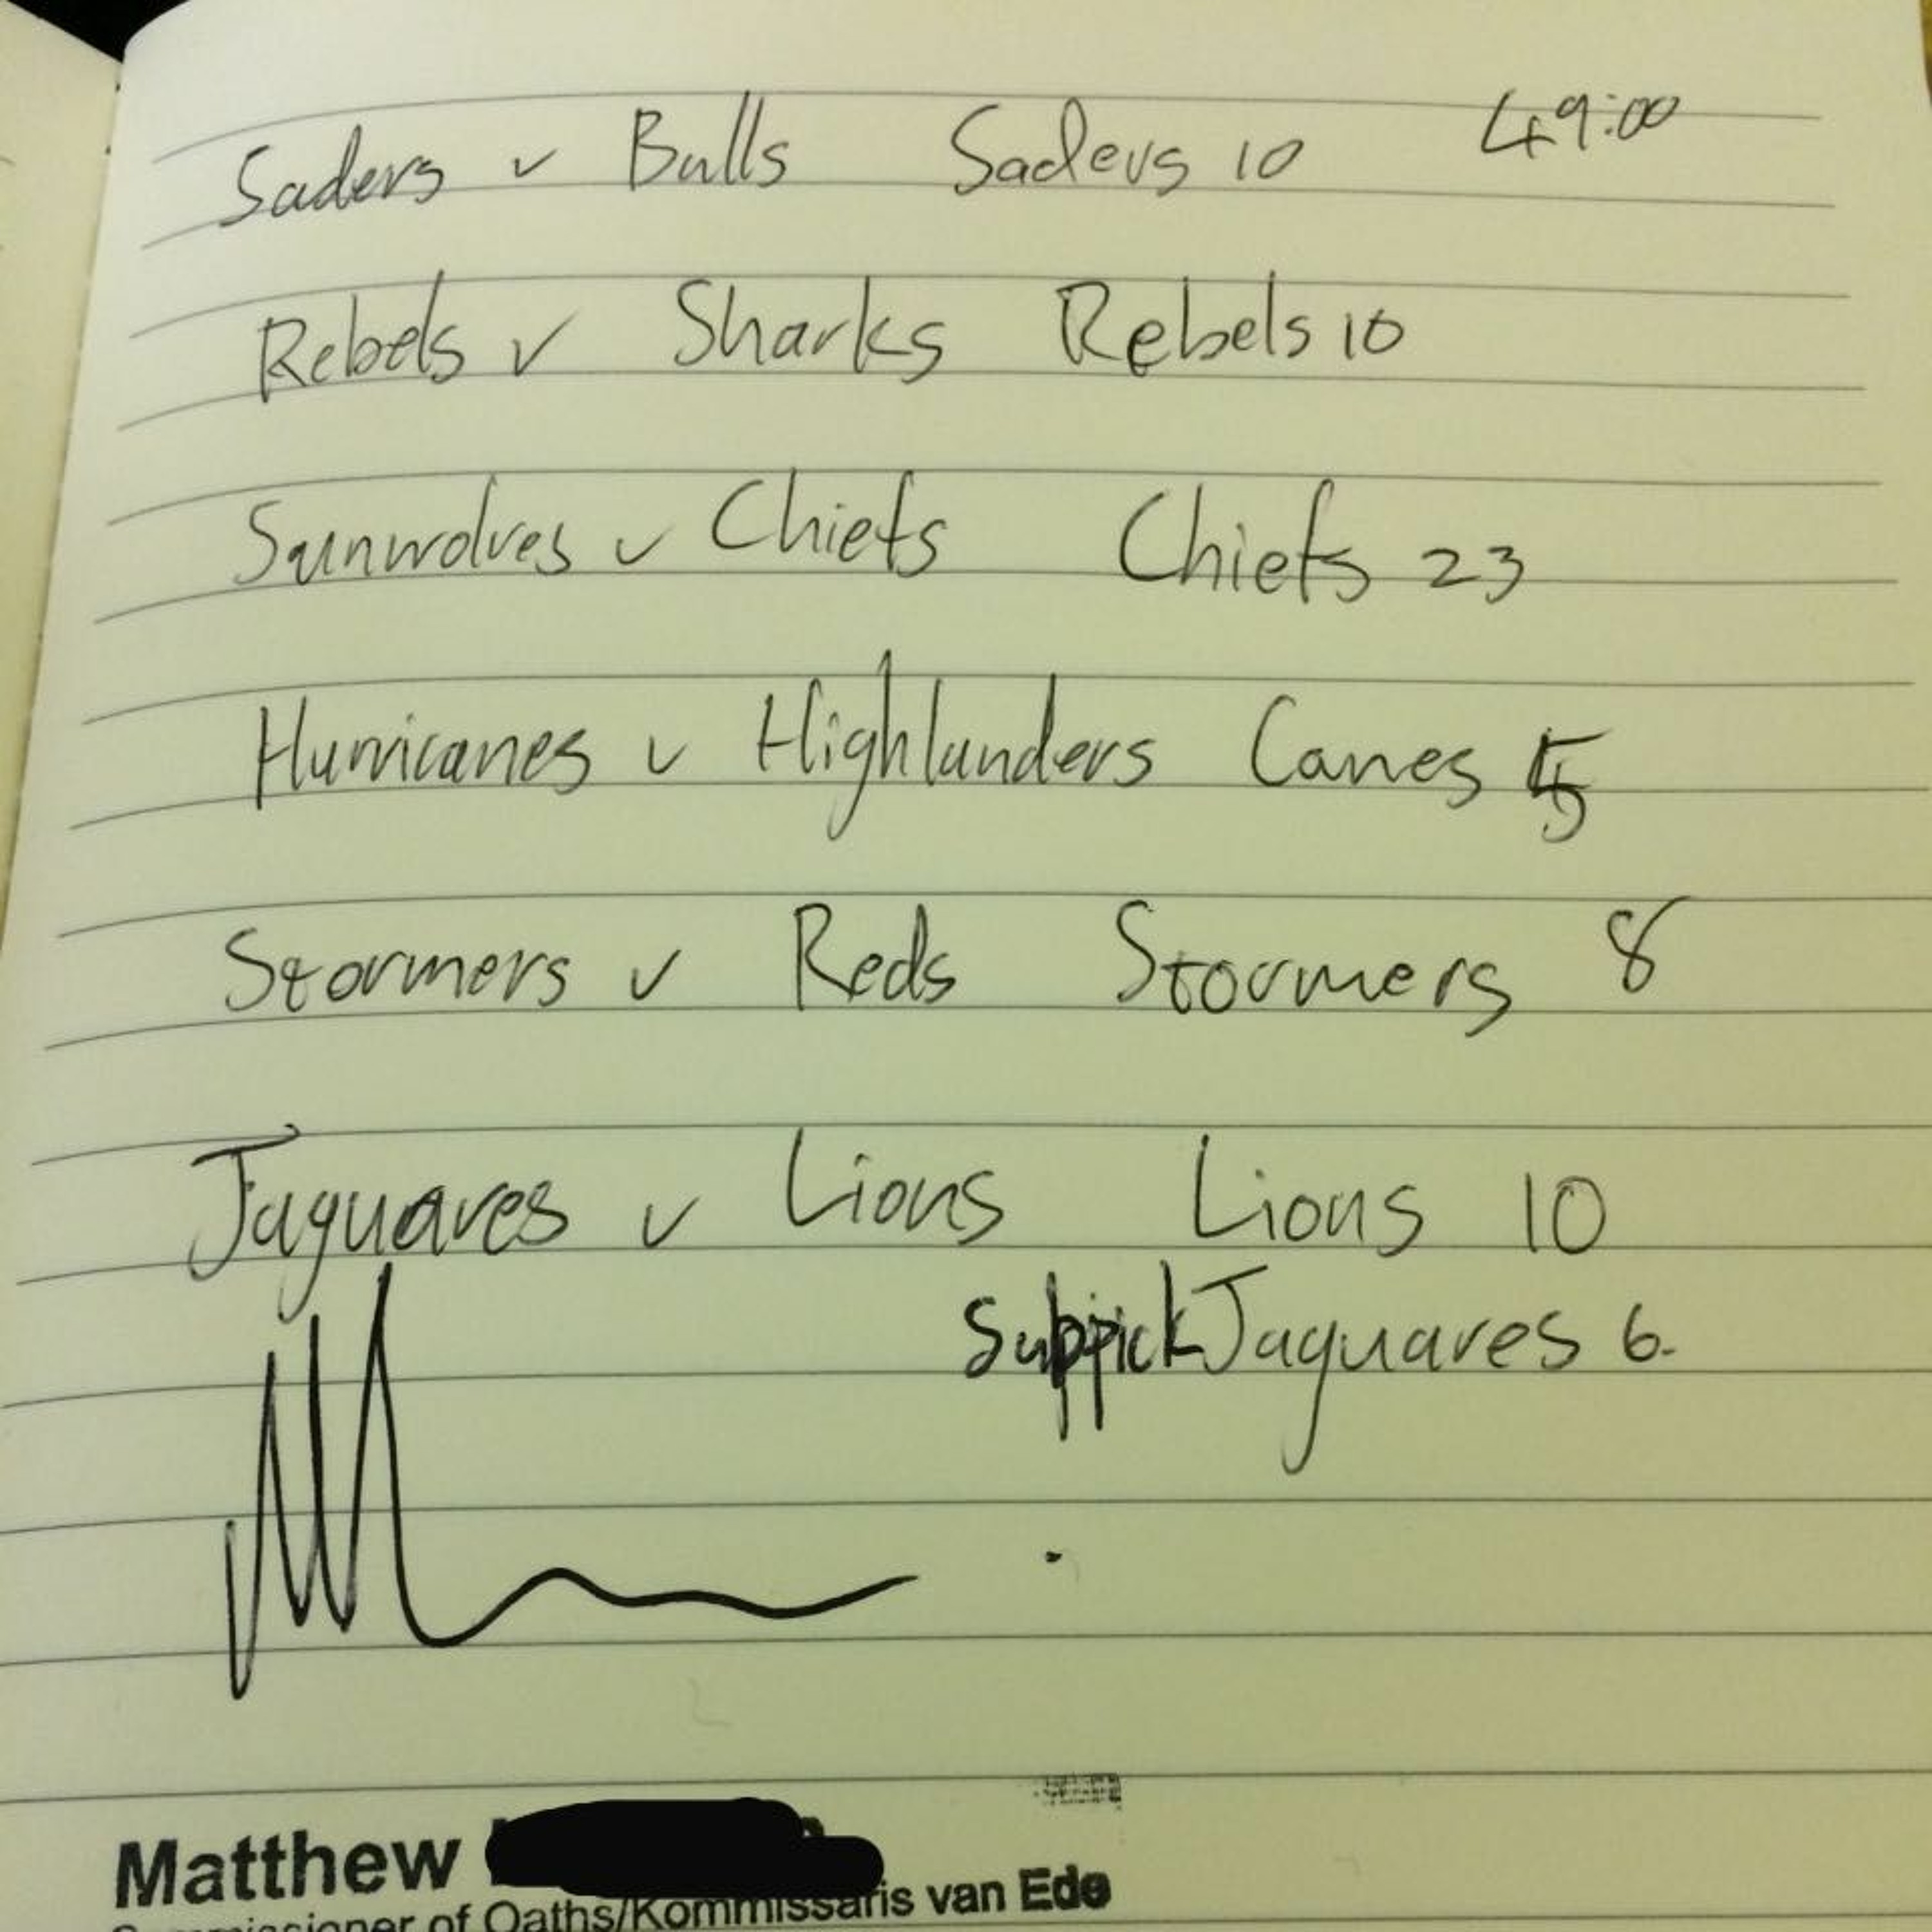 Saders v Bulls Saders 10 49:00
Rebels v Sharks Rebels 10
Sunwolves v Chiefs Chiefs 23
Hurricanes v Highlanders Canes 5
Stormers v Reds Stormers 8
Jaguares v Lions Lions 10
Suppick Jaguares 6.
Matthew
of Oaths/Kommissaris van Ede